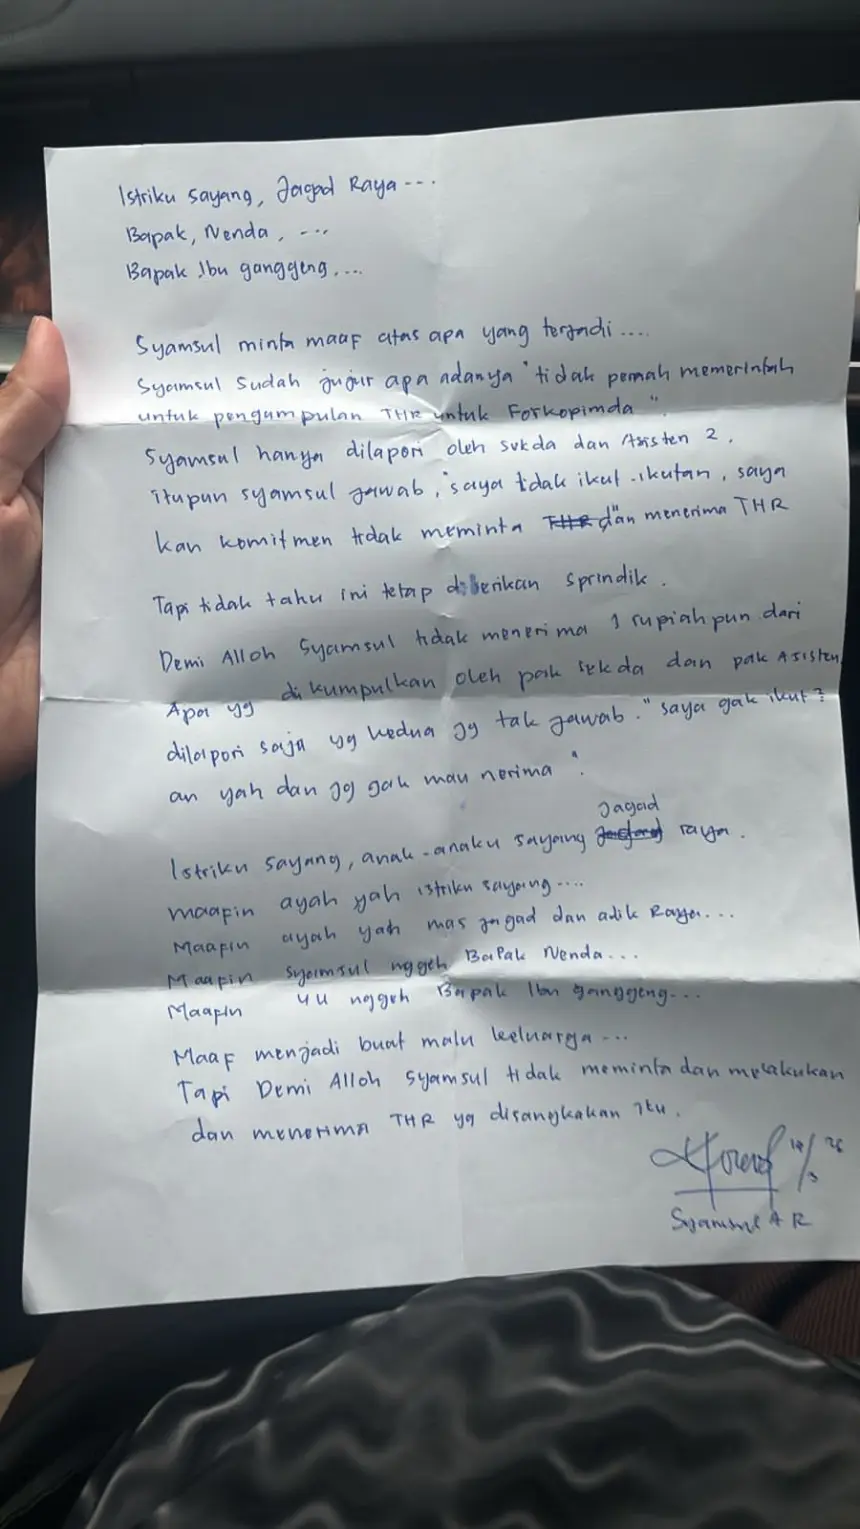 Istriku sayang, Jagad Raya ---
Bapak, Nenda, ....
Bapak Ibu ganggeng....
Syamsul minta maaf atas apa yang terjadi ....
Syamsul sudah jujur apa adanya "tidak pernah memerintah
untuk pengumpulan THR untuk Forkopimda".
Syamsul hanya dilapori oleh sekda dan Asisten 2,
itupun syamsul jawab, "saya tidak ikut-ikutan, saya
kan komitmen tidak meminta THR dan menerima THR"
Tapi tidak tahu ini tetap diberikan sprindik.
Demi Alloh Syamsul tidak menerima 1 rupiahpun dari
Apa yg dikumpulkan oleh pak sekda dan pak Asisten
dilapori saja yg kedua jg tak jawab. "saya gak ikut2
an yah dan jg gak mau nerima".
Istriku sayang, anak-anaku sayang Jagad raya.
maapin ayah yah istriku sayang....
Maapin ayah yah mas jagad dan adik Raya...
Maapin syamsul nggeh Bapak Nenda...
Maapin nggeh Bapak Ibu ganggeng...
Maaf menjadi buat malu keluarga...
Tapi Demi Alloh Syamsul tidak meminta dan melakukan
dan menerima THR yg disangkakan itu.
Syamsul A R